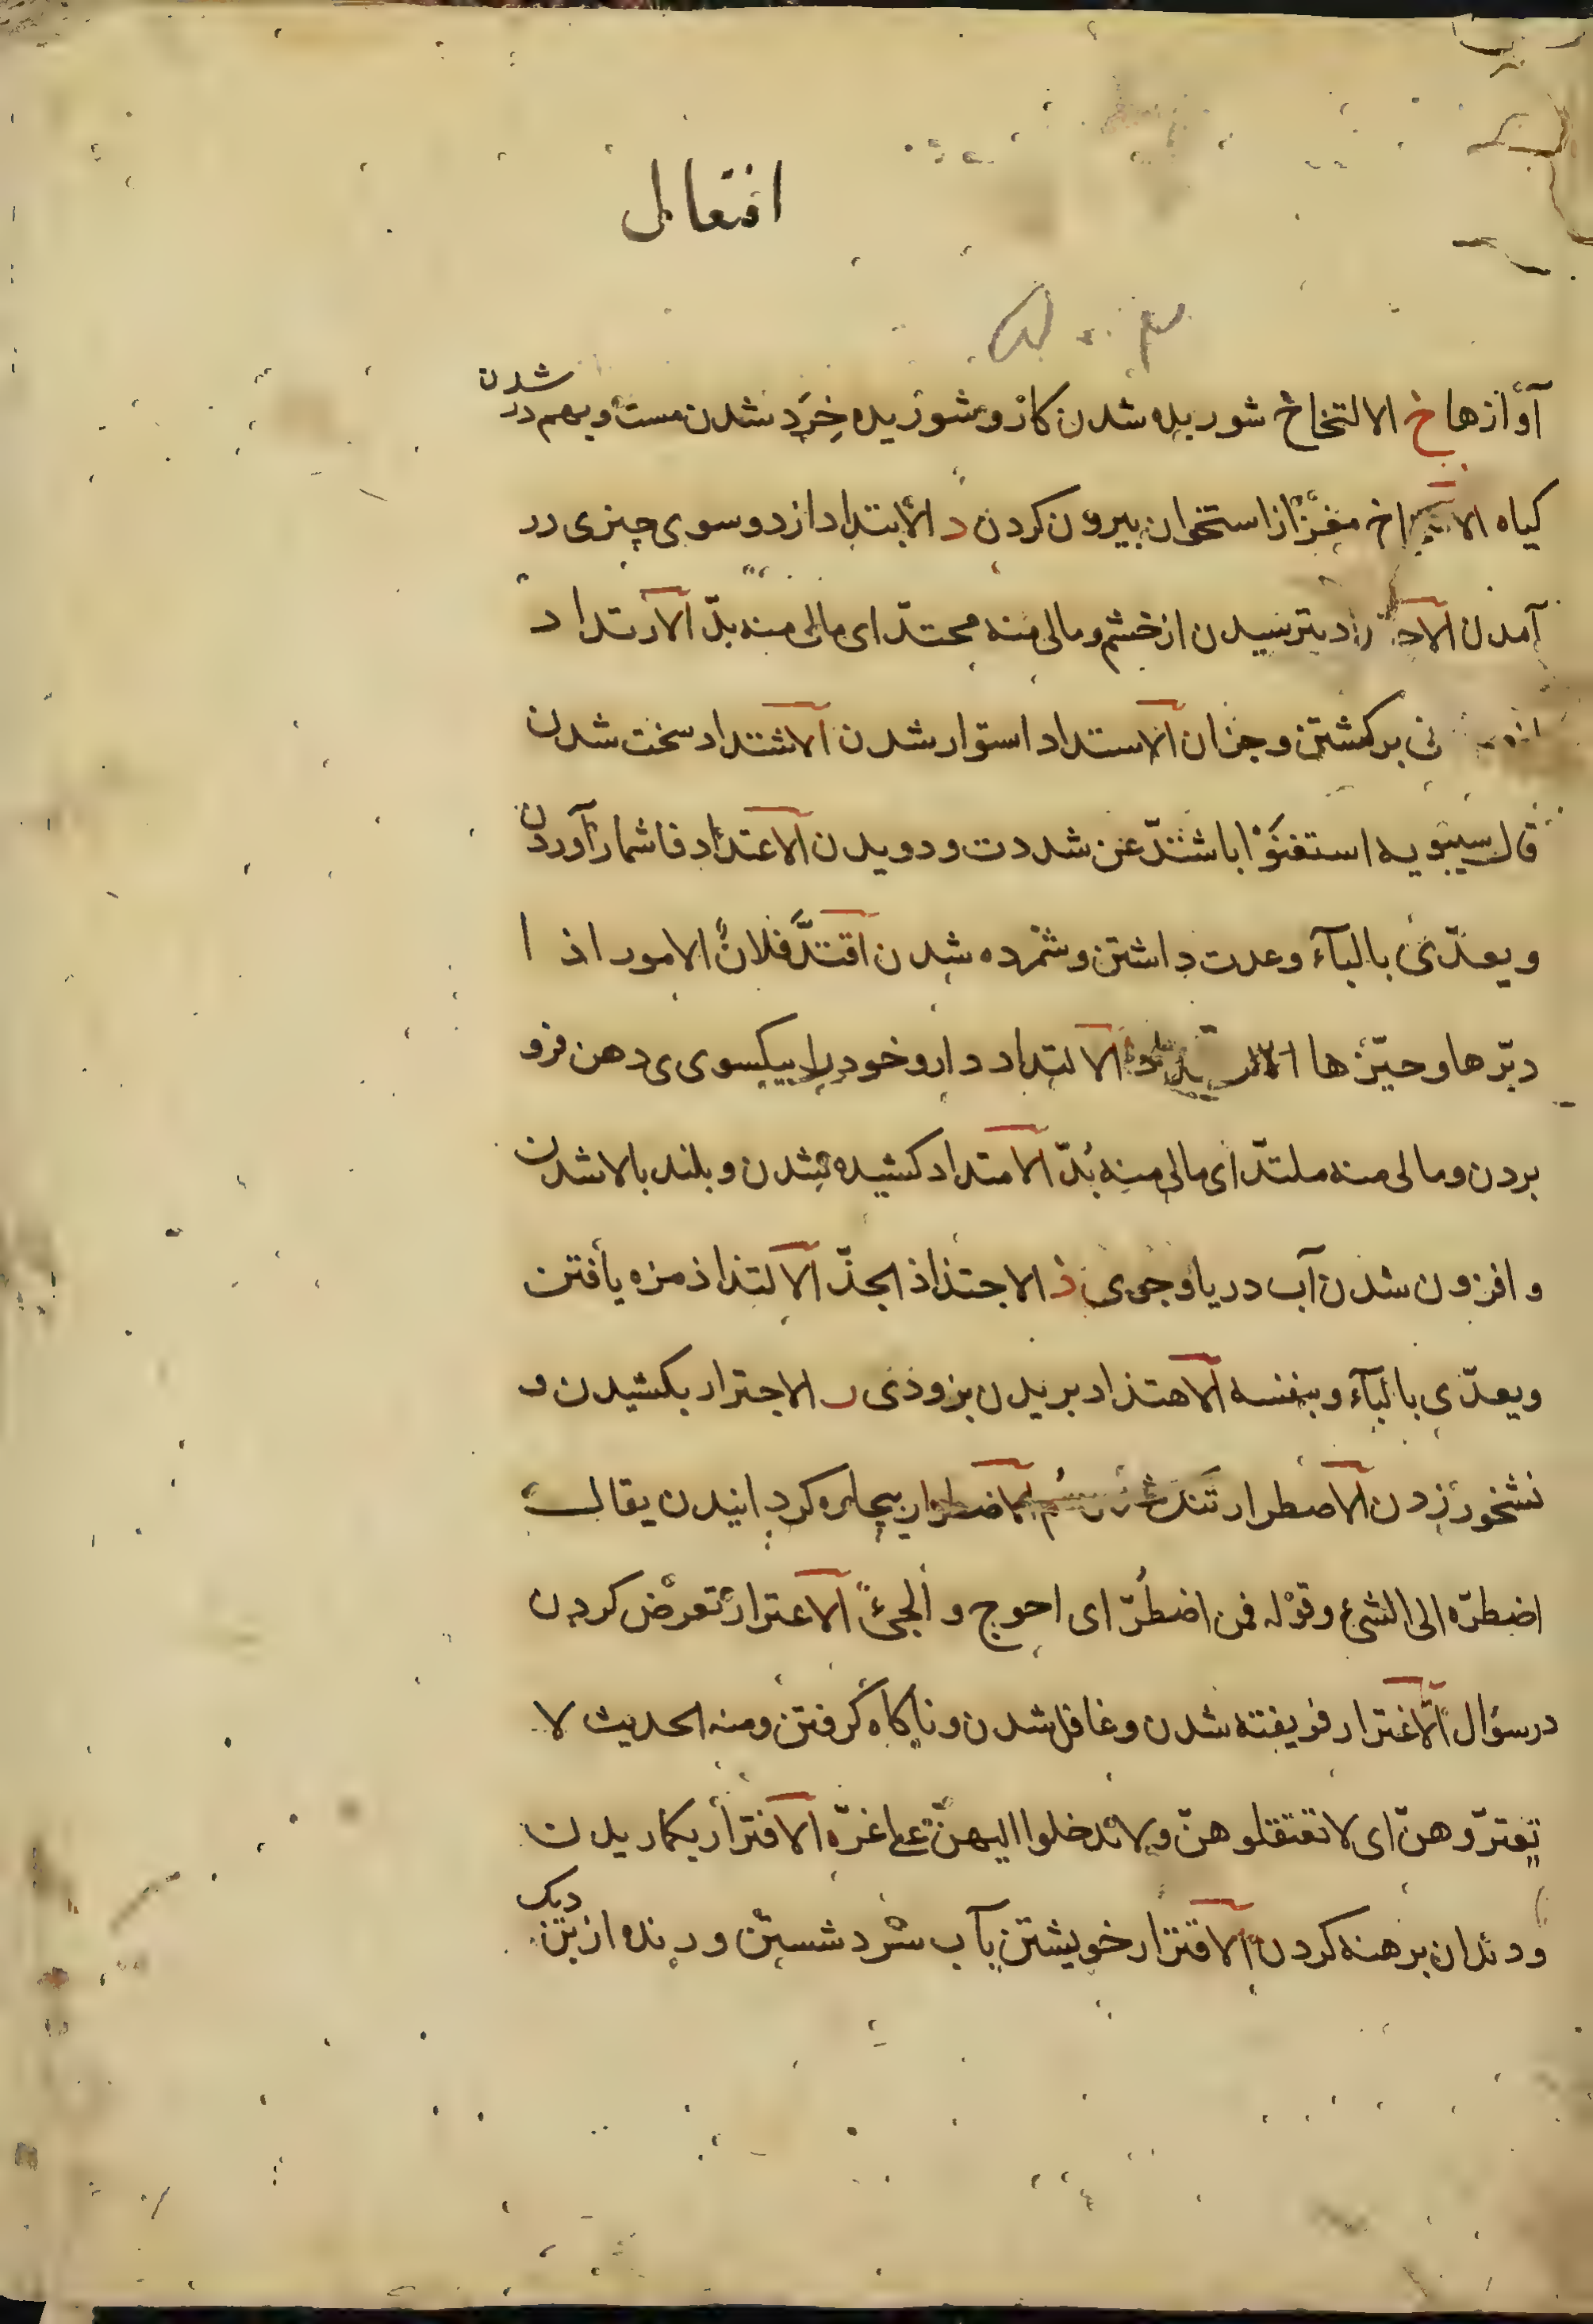 افتعال
آوازها خ الالتخاخ شوریده شدن کار و شوریده خرد شدن مست و بهم در شدن
کیاه الا مغز از استخوان بیرون کردن د الابتداد از دو سوی چیزی در
آمدن بترسیدن از خشم و مالی منه محتدّ ای مالی منه بدّ الارتداد
برکشتن و جزان الاستداد استوار شدن الاشتداد سخت شدن
قال سیبویه استغنَوْا باشتدّ عن شددت و دویدن الاعتداد فاشمار آوردن
ویعدّی بالبآء وعدت داشتن و شمرده شدن اقتدَّ فلانٌ الامور اذا
دبّرها و حیّزها الالتداد دارو خود را بیکسوی دهن فرو
بردن و مالی منه ملتدّ ای مالی منه بُدّ الامتداد کشیده شدن و بلند بالا شدن
و افزون شدن آب دریا و جوی ذ الاجتذاذ الجذّ الالتذاذ مزه یافتن
ویعدّی بالبآء وبنفسه الاهتذاذ بریدن بزوذی ر الاجترار بکشیدن و
نشخور زدن الاصطرار تنک الاضطرار بیچاره کردانیدن یقال
اضطرّه الی الشیء وقوله فمن اضطُرّ ای احوج و الجئ الاعترار تعرّض کردن
در سؤال الاغترار فریفته شدن و غافل شدن و ناکاه کرفتن و منه الحدیث لا
تغترّوهنّ ای لا تغتفلوهنّ ولا تدخلوا الیهنّ علی غرّه الافترار بکماریدن
و دندان برهنه کردن الاقترار خویشتن بآب سرد شستن و دنده از بن دیک